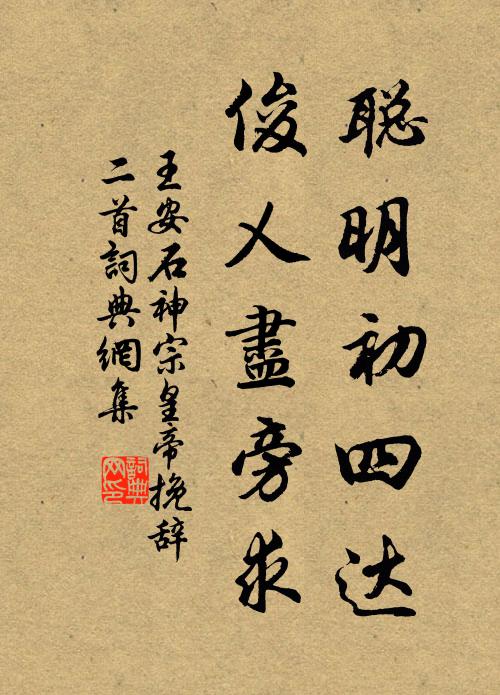 聪明初四达
俊乂盡旁求
王安石神宗皇帝挽辞
二首詞典網集
詞典网印